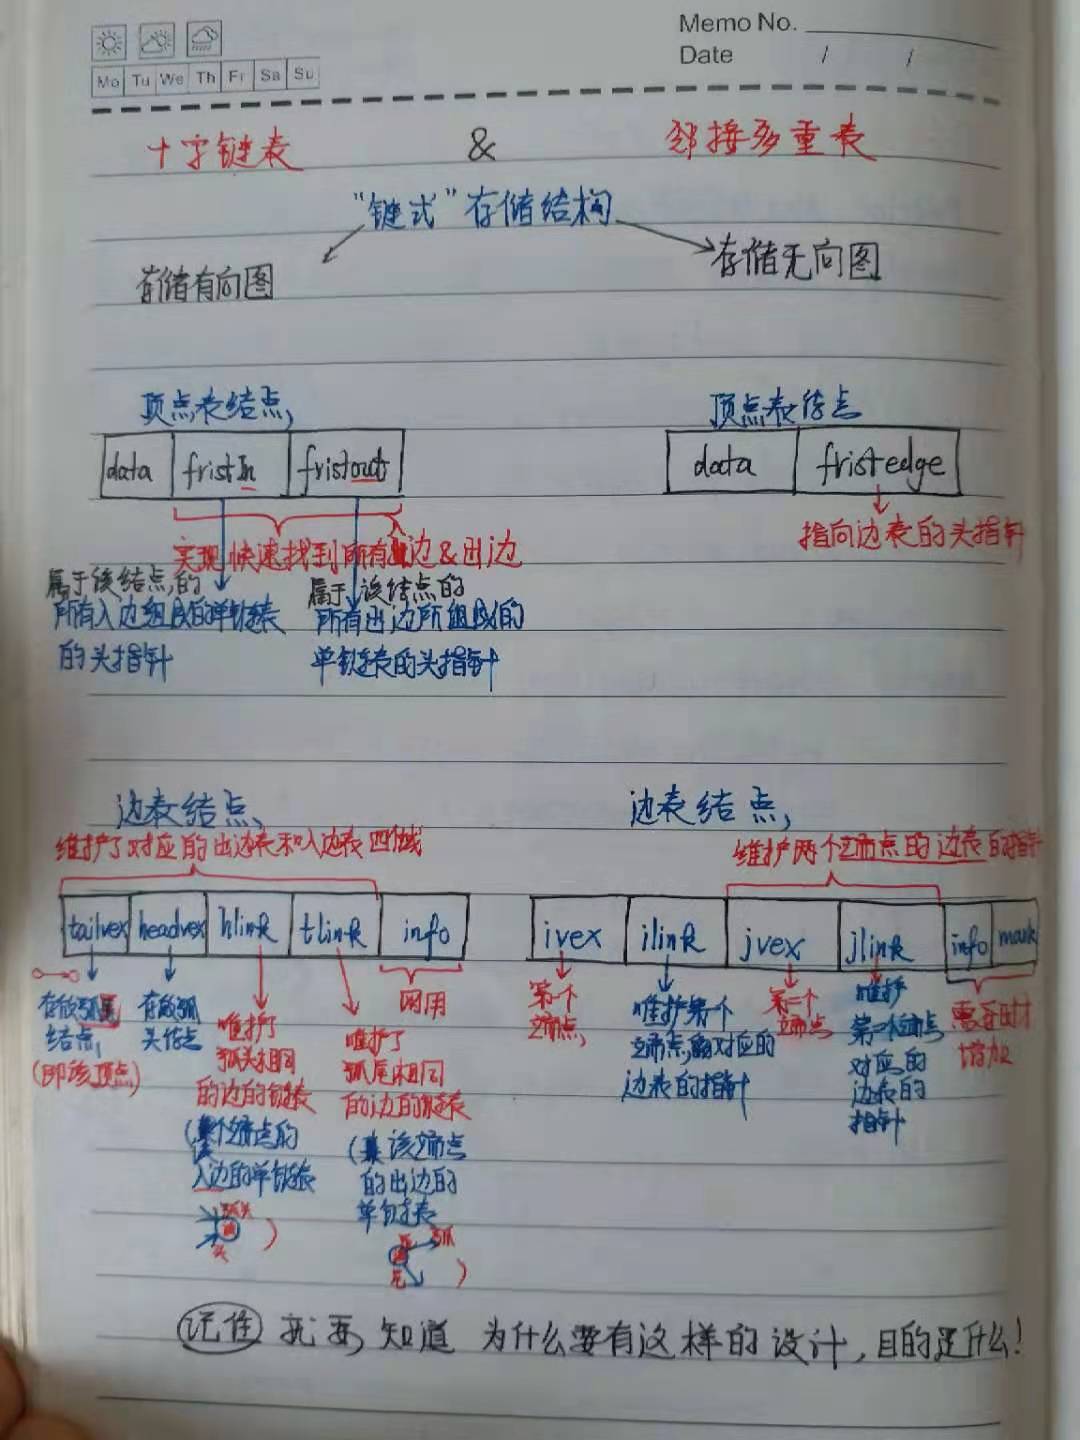 Memo No.
Mo Tu We Th Fr Sa Su
Date / /
十字链表 & 邻接多重表
"链式"存储结构
存储有向图
存储无向图
顶点表结点
data fristIn fristout
实现快速找到所有入边&出边
属于该结点的
所有入边组成的单链表
的头指针
属于该结点的
所有出边所组成的
单链表的头指针
顶点表结点
data fristedge
指向边表的头指针
边表结点
维护了对应的出边表和入边表
tailvex headvex hlink tlink info
存放弧尾
结点
(即该顶点)
存放弧
头结点
维护了
弧头相同
的边的链表
个端点的
入边的单链表
弧头
头
)
维护了
弧尾相同
的边的链表
该端点
的出边的
单链表
弧
尾
)
网用
边表结点
维护两个端点的边表的指针
ivex ilink jvex jlink info mark
第一个
端点
维护第一个
端点对应的
边表的指针
第二个
端点
维护
第二个端点
对应的
边表的
指针
需要时才
增加
记住 抗要知道 为什么要有这样的设计,目的是什么!